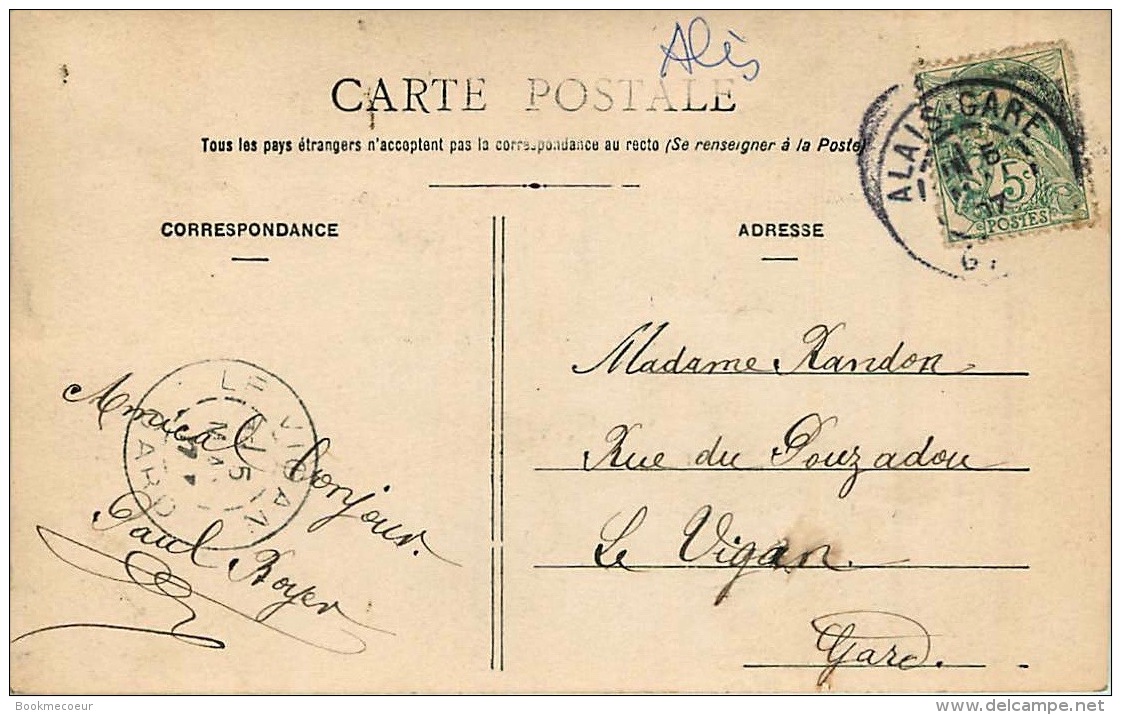 Alès
CARTE POSTALE
Tous les pays étrangers n'acceptent pas la correspondance au recto (Se renseigner à la Poste)
ALAIS-GARE
5c
POSTES
CORRESPONDANCE
ADRESSE
Madame Randon
Rue du Pouzadou
Le Vigan.
Gard.
LE VIGAN
GARD
Amical bonjour.
Paul Royer
Bookmecoeur
www.delcampe.net